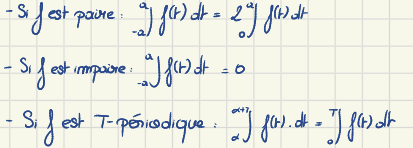 - Si f est paire : ∫_{-a}^{a} f(t) dt = 2 ∫_{0}^{a} f(t) dt
- Si f est impaire : ∫_{-a}^{a} f(t) dt = 0
- Si f est T-périodique : ∫_{α}^{α+T} f(t). dt = ∫_{0}^{T} f(t) dt